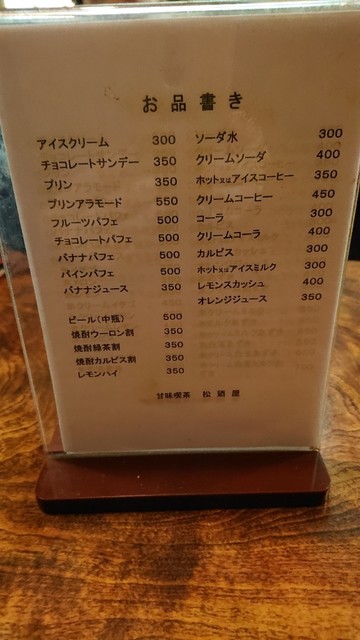 お品書き
アイスクリーム 300
チョコレートサンデー 350
プリン 350
プリンアラモード 550
フルーツパフェ 500
チョコレートパフェ 500
バナナパフェ 500
パインパフェ 500
バナナジュース 350
ビール(中瓶) 500
焼酎ウーロン割 350
焼酎緑茶割 350
焼酎カルピス割 350
レモンハイ 350
ソーダ水 300
クリームソーダ 400
ホット又はアイスコーヒー 350
クリームコーヒー 450
コーラ 300
クリームコーラ 400
カルピス 300
ホット又はアイスミルク 300
レモンスカッシュ 400
オレンジジュース 350
甘味喫茶 松廼屋